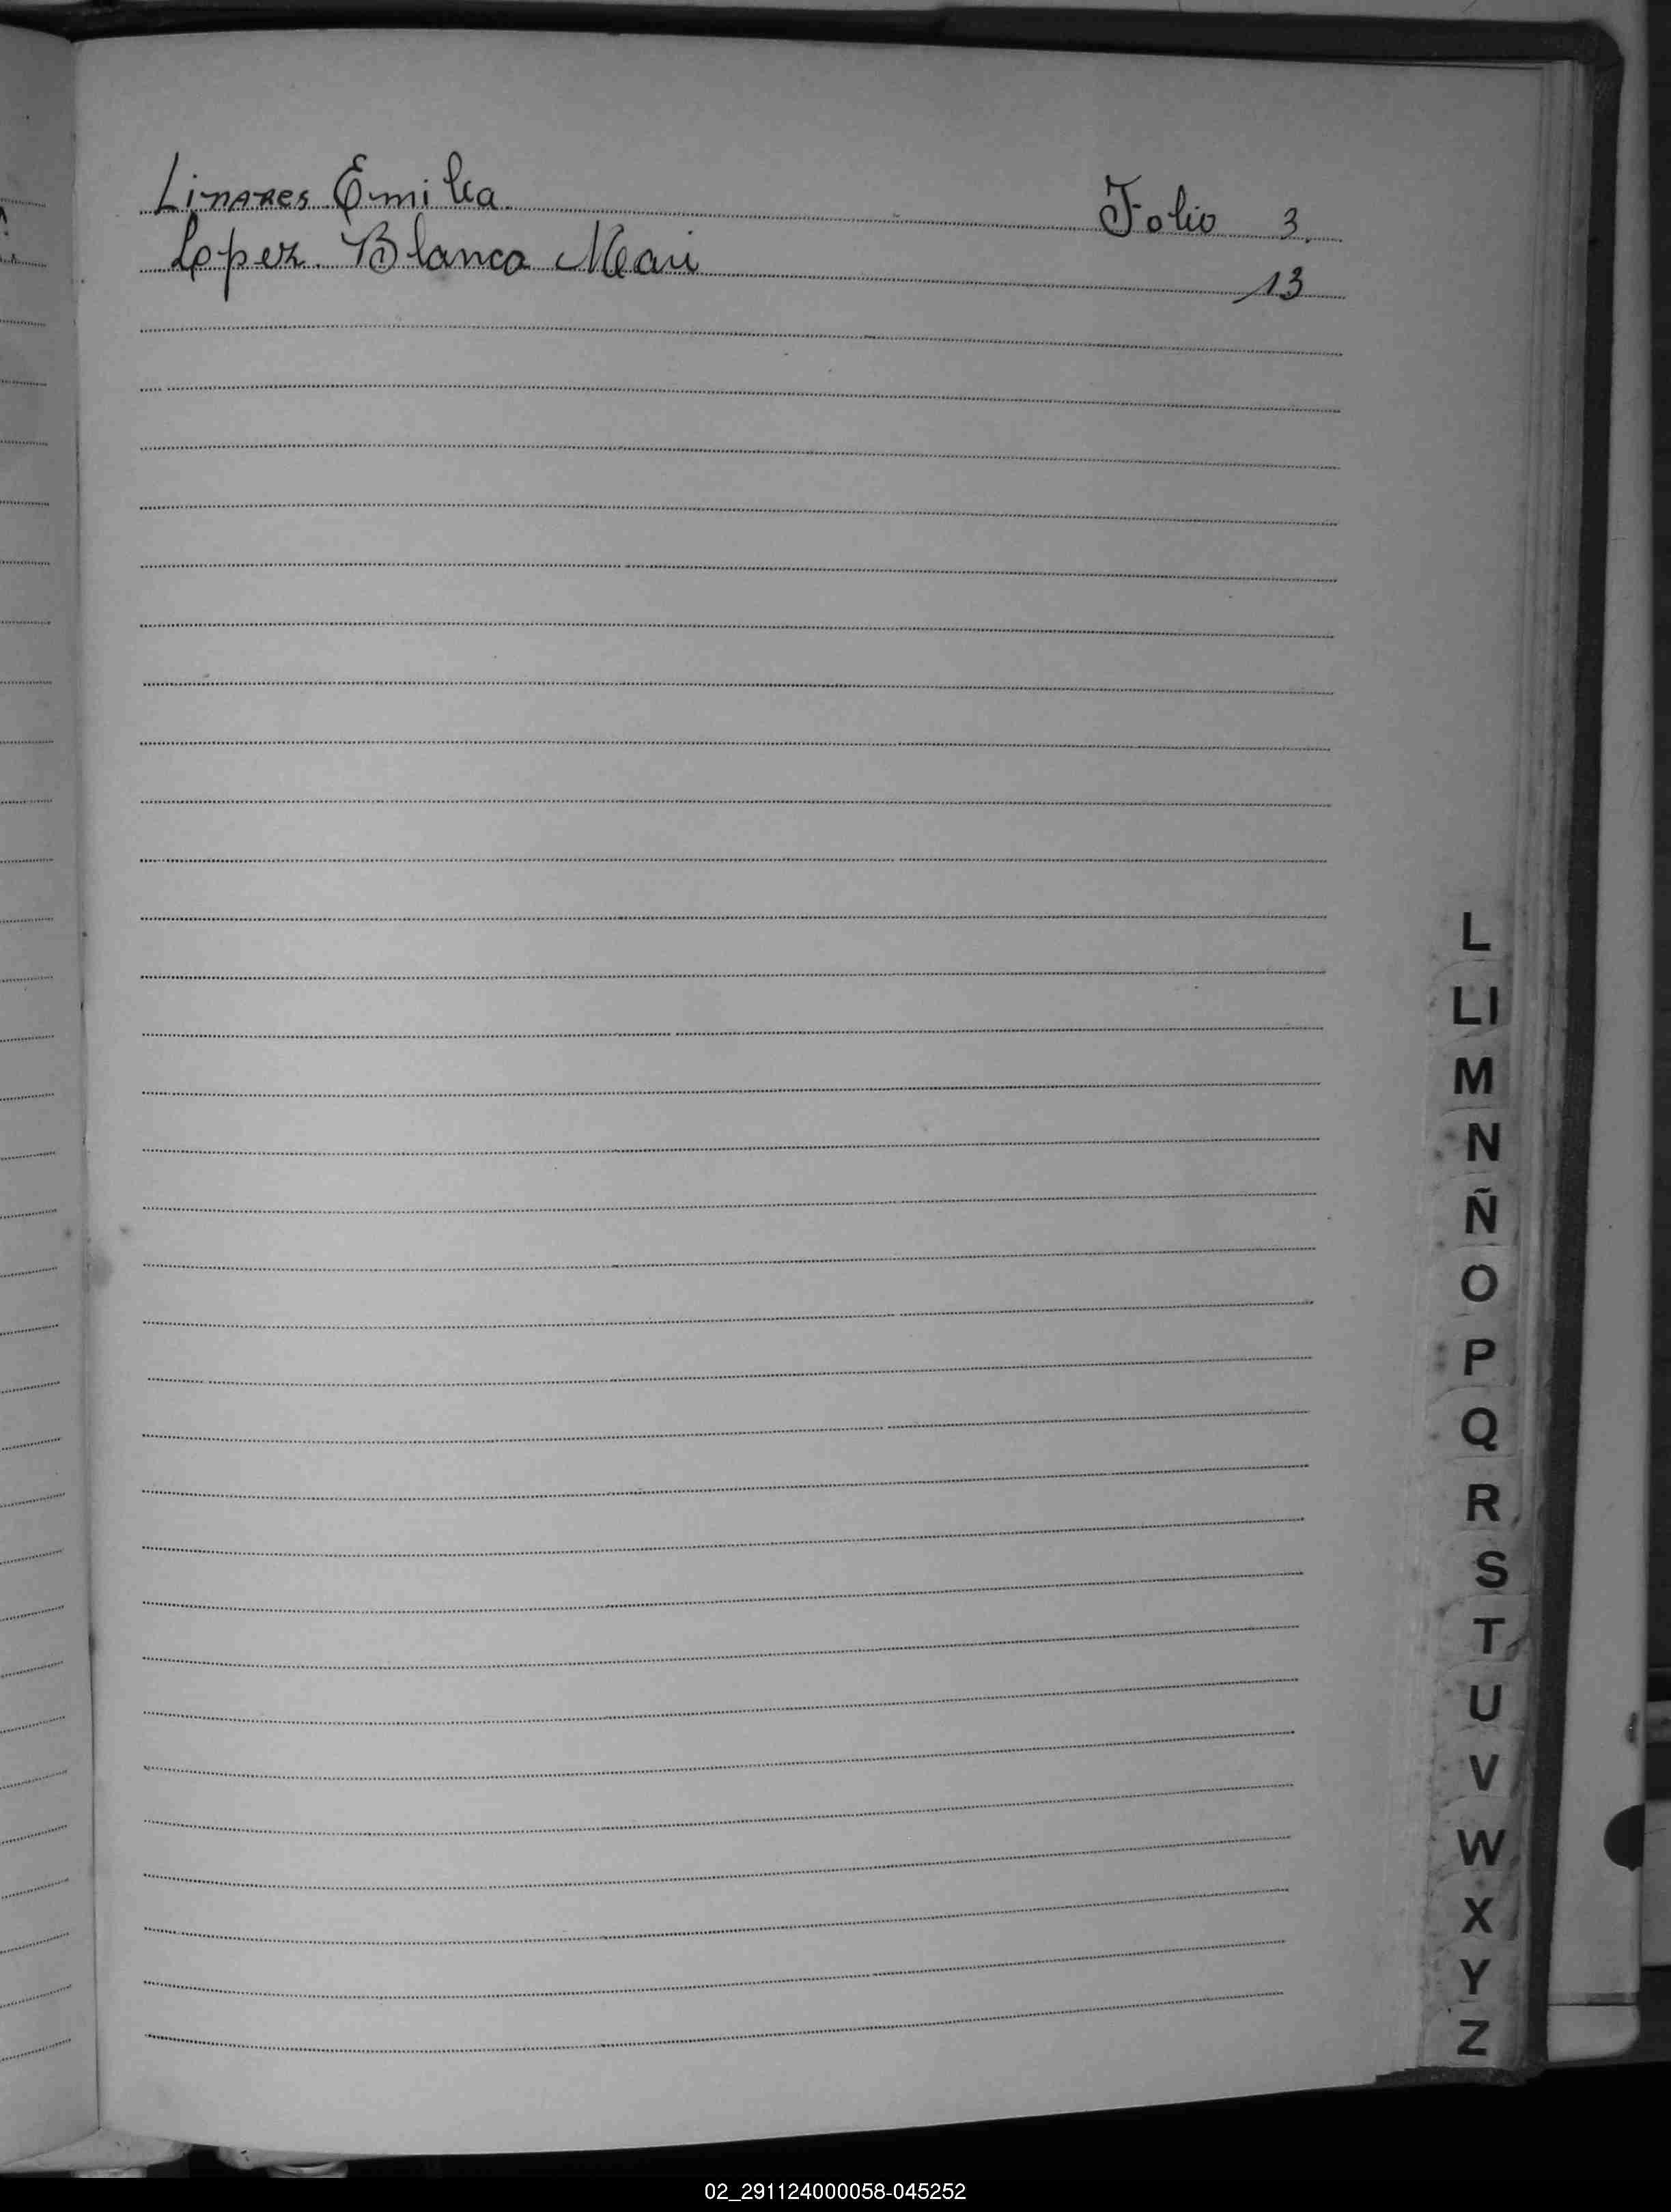 Linares Emilia Folio 3.
Lopez Blanca Mari 13
L
Ll
M
N
Ñ
O
P
Q
R
S
T
U
V
W
X
Y
Z
02_291124000058-045252